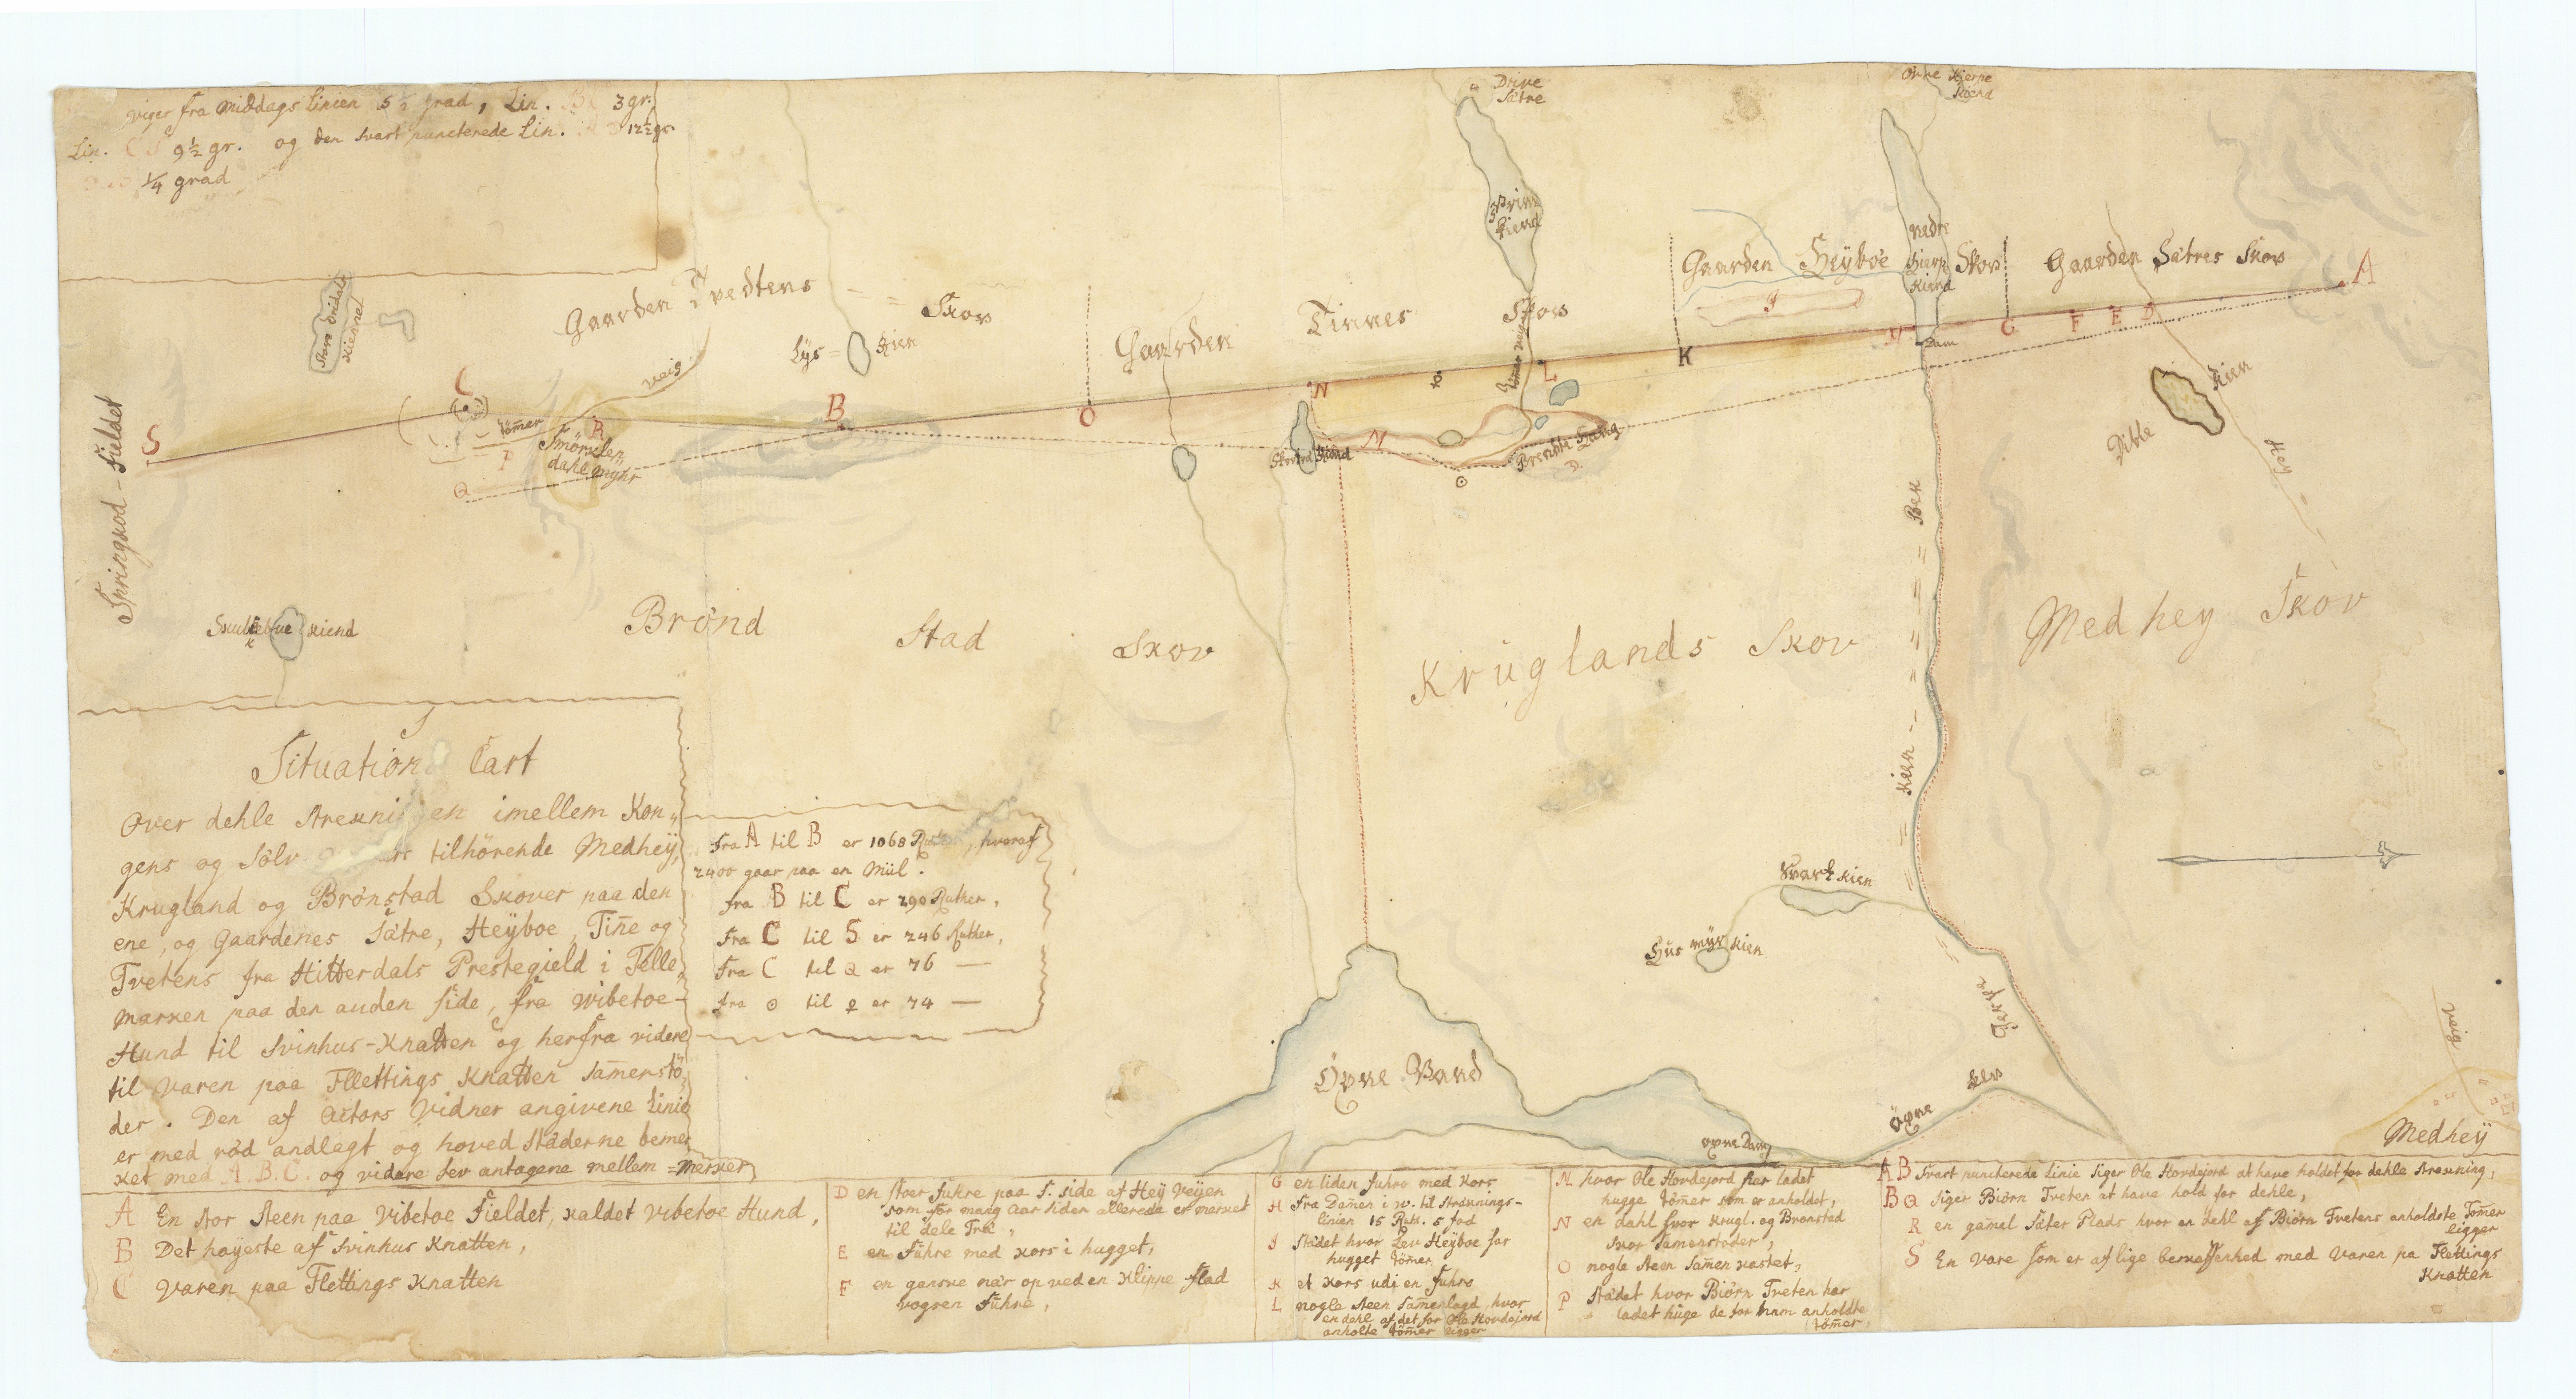 viger fra Middags Linien 5½ grad, Lin. BC 3 gr.
Lin. CS 9½ gr. og den svart puncterede Lin. 12½ gr.
¼ grad
Drive
Sætre
Øvre Kierpe
Kiend
Drive
Kiend
Nedre
Kierp
Kiend
Gaarden Heyboe Skov
Gaarden Sætres Skov
A
Gaarden Tvedtens Skov
Store Dridals
Kiennet
Lys= Kien
Gaarden Tinnes Skov
J
H
Dam
G
F
E
D
K
L
N
M
O
B
C
S
R
P
Q
veig
Tömer
Smörklep„
dahl Enghr
Brendte Haug
D.
Dible Kien
Hey
Springkod-Fieldet
Kiend
Brönd Stad Skov
Kruglands Skov
Medhey Skov
Kierr Bek
Svart Kien
Hus myr Kien
Jerpe
Öpne Elv
Öpne Vand
Öpne Dam
Veig
Medhey
Situation Cart
Over dehle Strekni en imellem Kon„
gens og Sölv tilhörende Medhey,
Krugland og Brönstad Skover paa den
ene, og Gaardenes Sætre, Heyboe, Tiñe og
Tvetens fra Hitterdals Prestegield i Telle„
marken paa den anden side, fra Wibetoe-
Hund til Svinhus-Knatten og herfra videre
til Varen paa Flettings Knatten Sam̄erstö„
der. Den af Actors Vidner angivene Linie
er med röd andlagt og hoved Stæderne bemer„
ket med A. B. C. og videre Lev antagene mellem=Merker
Fra A til B er 1068 Ruther, hvoraf
2400 gaar paa en Miil.
fra B til C er 290 Ruther,
Fra C til S er 246 Ruther,
Fra C til Q er 76 —
fra ⊙ til er 74 —
A En stor Steen paa Vibetoe Fieldet, kaldet Vibetoe Hund,
B Det høyeste af Svinhus Knatten,
C Varen paa Flettings Knatten
D en stoer Fuhre paa S. side af Hey Veyen
som for mang Aar siden allerede er merket
til dele Træ,
E en Fuhre med kors i hugget,
F en ganske nær op ved en Klippe Stad
vogsen Fuhre,
G en liden Fuhre med Kors
H Fra Dam̄en i w. til Stræknings-
linien 15 Ruth. 5 fod
J Stædet hvor Lev Heyboe har
hugget Töm̄er
K et Kors udi en Fuhre
L nogle Steen Sam̄enlagd, hvor
en dehl af det for Ole Hovdejord
anholte Töm̄er ligger
M hvor Ole Hovdejord har ladet
hugge Töm̄er som er anholdet,
N en dahl hvor Krugl. og Brønstad
Skov Samenstöder,
O nogle Steen Sam̄en kastet,
P Stædet hvor Biörn Tveten har
ladet huge de for ham anholdte
Töm̄er
AB Svart puncterede Linie siger Ole Hovdejord at have holdet for dehle Strekning,
BQ siger Biörn Tveten at have hold for dehle,
R en gamel Sæter Plads hvor en dehl af Biörn Tvetens anholdte Tömer
ligger
S En Vare som er af lige beskaffenhed med Varen pa Flettings
Knatten